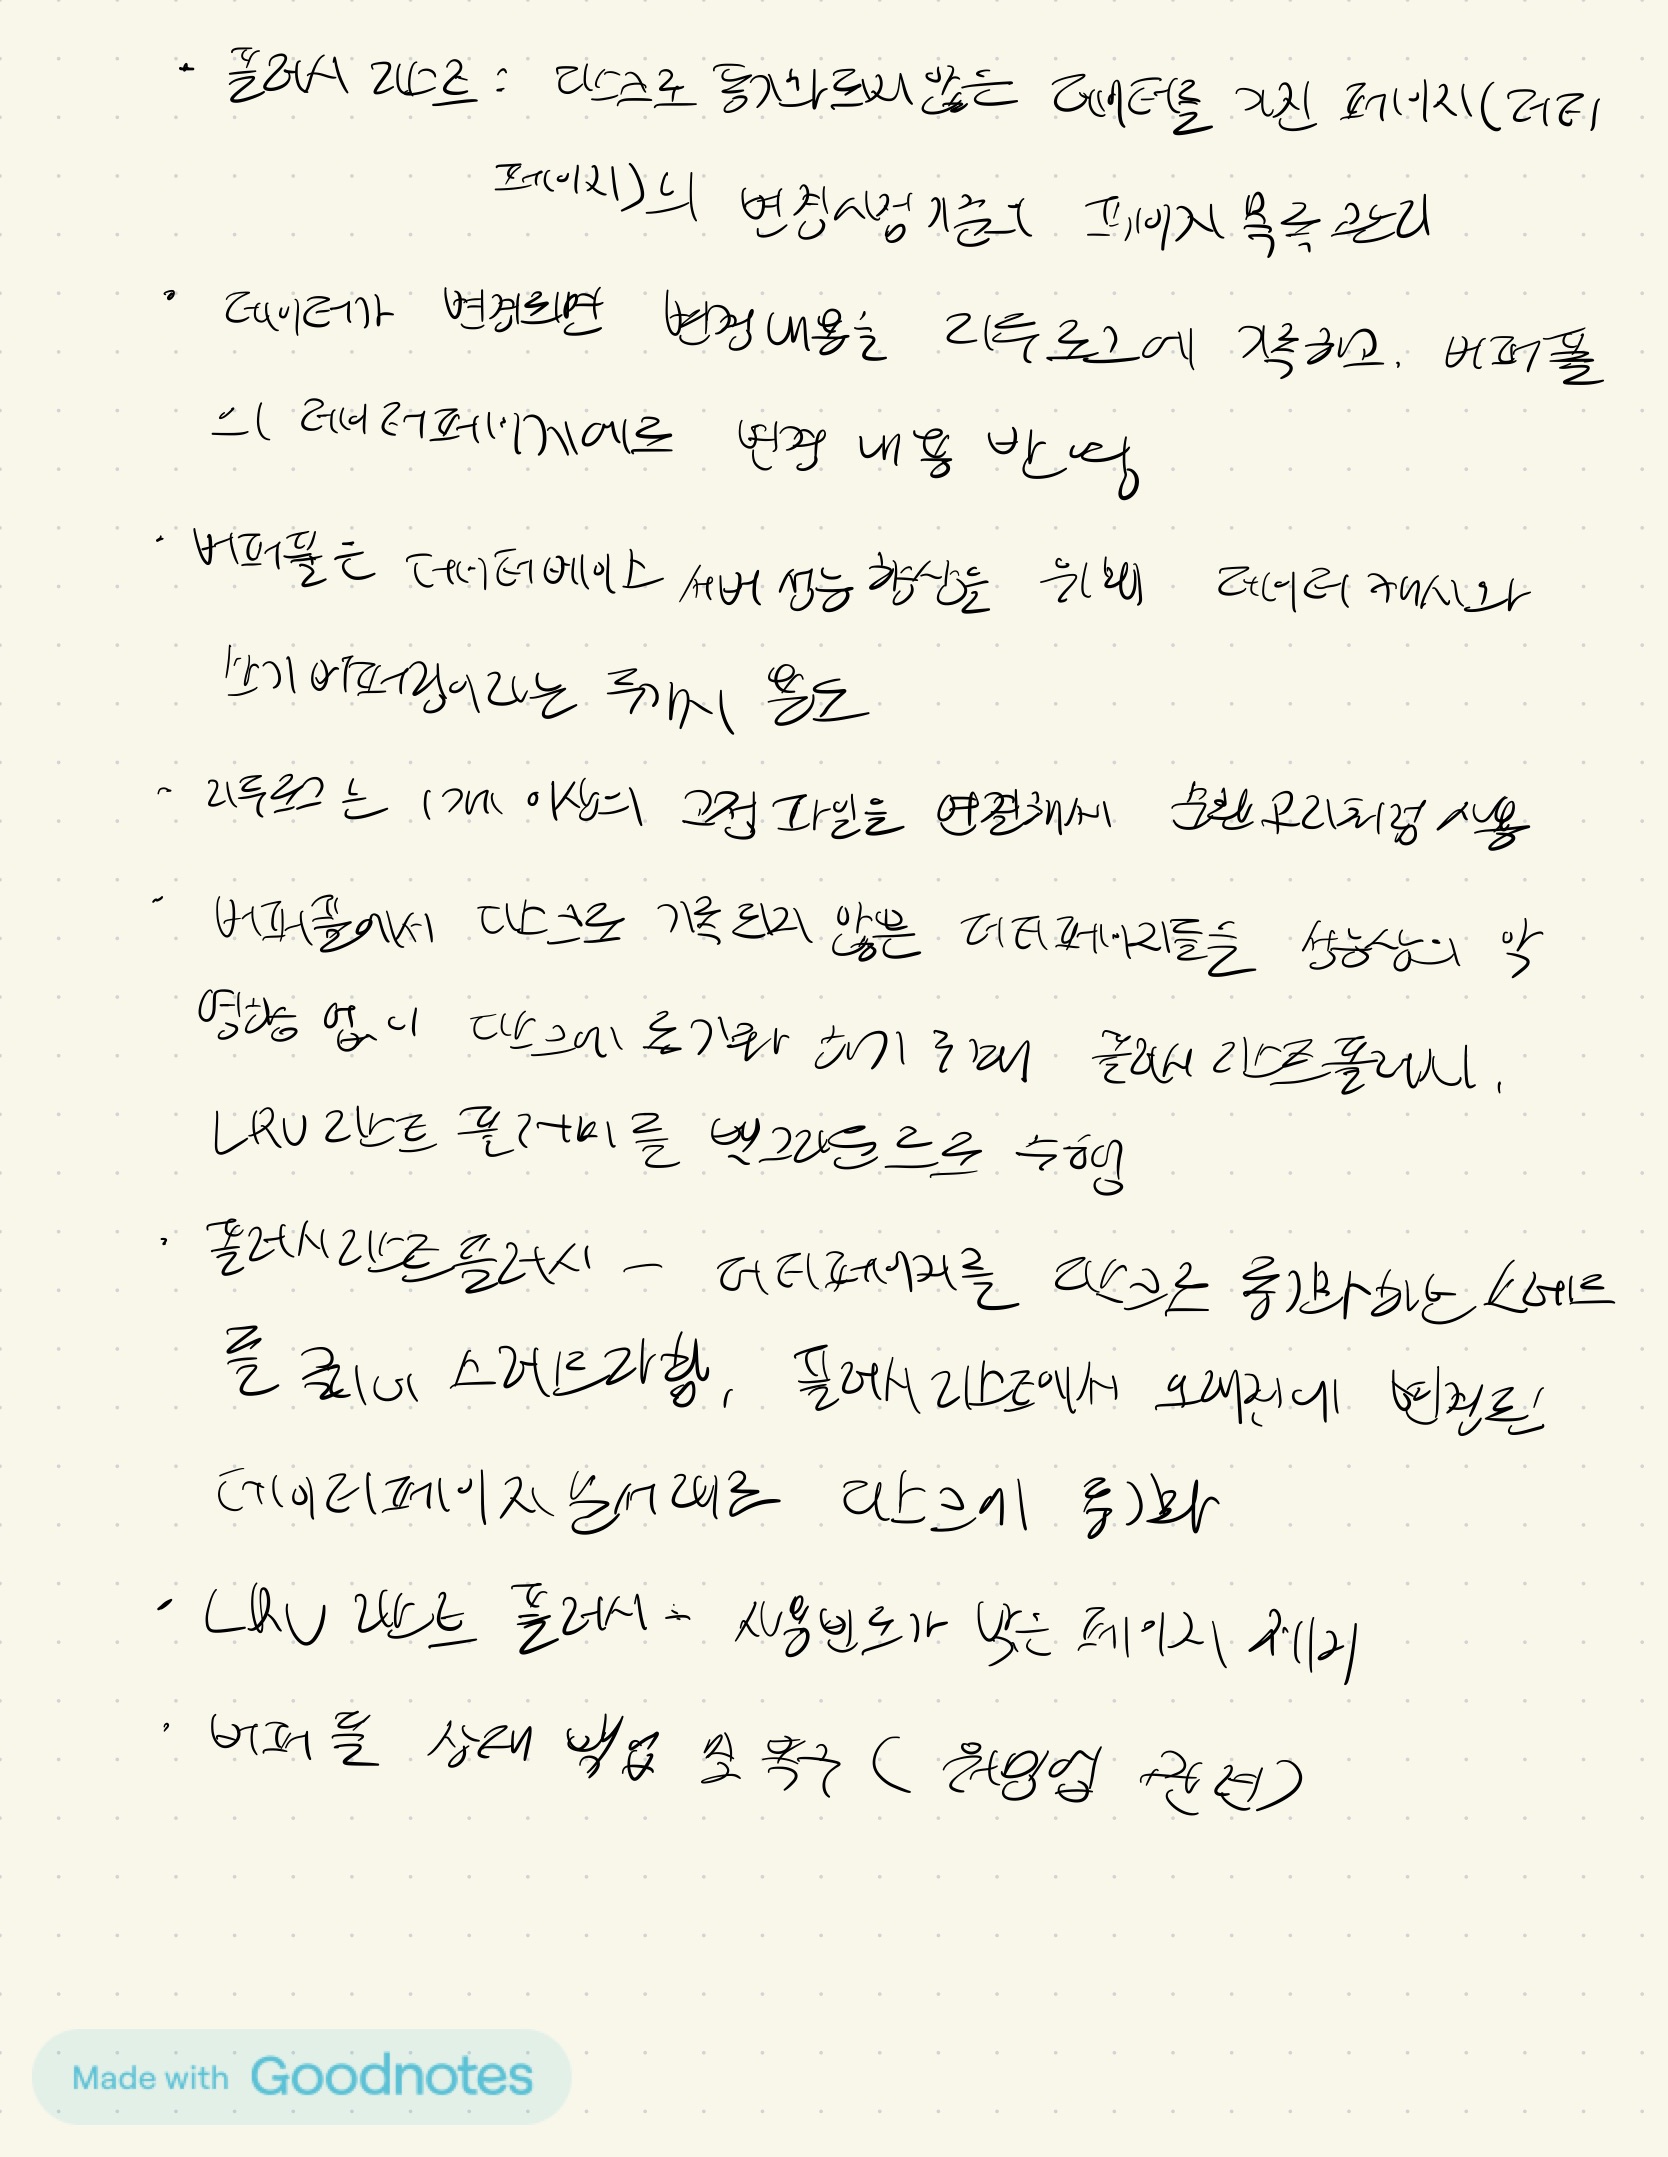 · 플러시 리스트 : 디스크로 동기화되지 않은 데이터를 가진 페이지(더티
페이지)의 변경시점 기준의 페이지 목록 관리
· 데이터가 변경되면 변경 내용을 리두 로그에 기록하고, 버퍼풀
의 데이터페이지에도 변경 내용 반영
· 버퍼풀은 데이터베이스 서버 성능 향상을 위해 데이터 캐시와
쓰기 버퍼링이라는 두가지 용도
- 리두로그는 1개 이상의 고정 파일을 연결해서 순환고리처럼 사용
- 버퍼풀에서 디스크로 기록되지 않은 더티페이지들을 성능상의 악
영향 없이 디스크에 동기화 하기 위해 플러시 리스트 플러시,
LRU 리스트 플러시를 백그라운드로 수행
· 플러시 리스트 플러시 - 더티페이지를 디스크로 동기화하는 스레드
를 클리너 스레드라함, 플러시 리스트에서 오래전에 변경된
데이터페이지 순서대로 디스크에 동기화
- LRU 리스트 플러시 - 사용빈도가 낮은 페이지 제거
· 버퍼 풀 상태 백업 및 복구 ( 워밍업 관련)
Made with Goodnotes